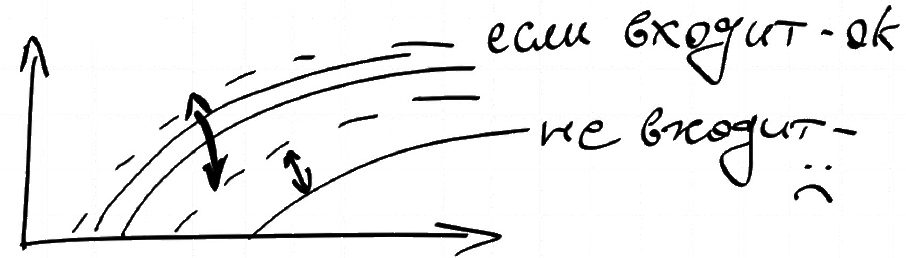 если входит - ok
не входит -
:(